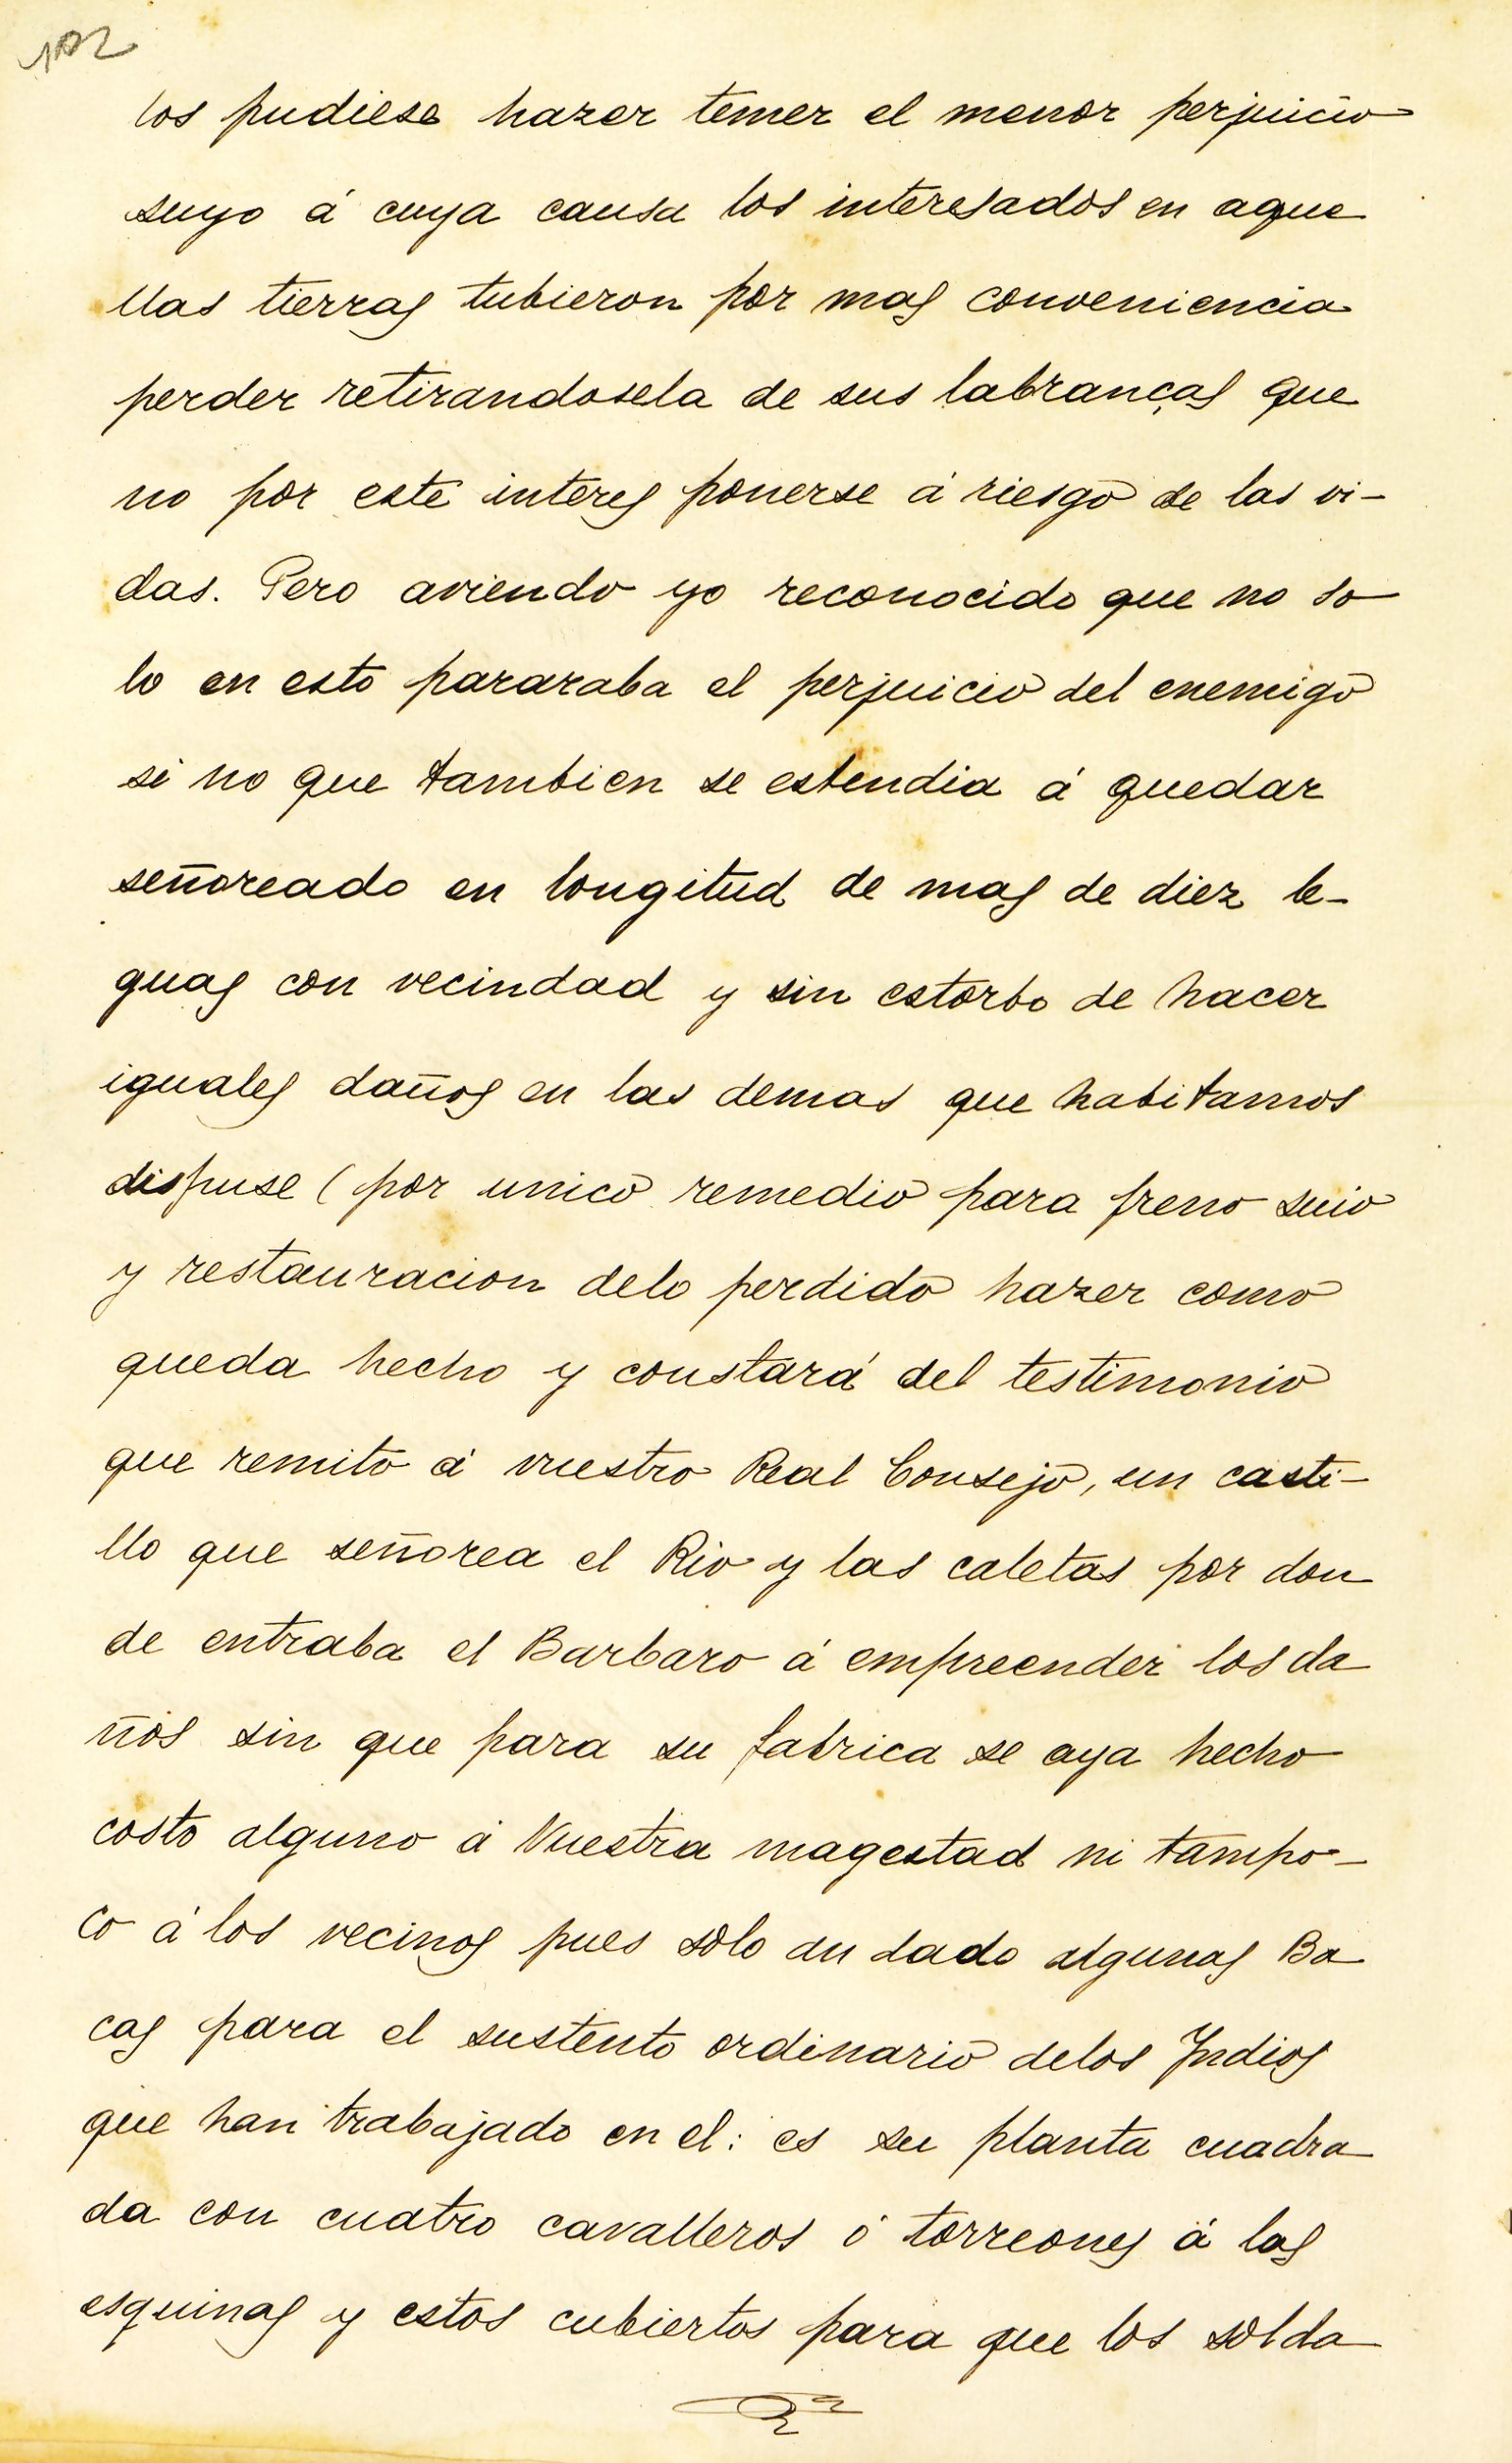 102
los pudiese hazer temer el menor perjuicio
suyo á cuya causa los interesados en aque
llas tierras tubieron por mas conveniencia
perder retirandosela de sus labranças que
no por este interes ponerse á riesgo de las vi-
das. Pero aviendo yo reconocido que no so
lo en esto pararaba el perjuicio del enemigo
si no que tambien se estendia á quedar
señoreado en longitud de mas de diez le-
guas con vecindad y sin estorbo de hacer
iguales daños en las demas que habitamos
dispuse (por unico remedio para freno suio
y restauracion delo perdido hazer como
queda hecho y constará del testimonio
que remito á vuestro Real Consejo, un casti-
llo que señorea el Rio y las caletas por don
de entraba el Barbaro á empreender los da
ños sin que para su fabrica se aya hecho
costo alguno á Vuestra magestad ni tampo-
co á los vecinos pues solo an dado algunas Ba
cas para el sustento ordinario delos Indios
que han trabajado en el: es su planta cuadra
da con cuatro cavalleros ó torreones á las
esquinas y estos cubiertos para que los solda